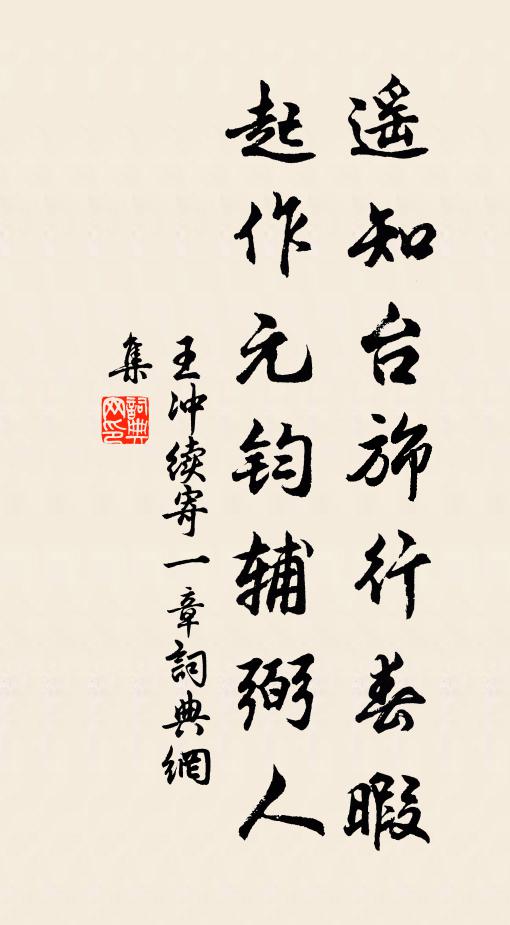 遥知台旆行春暇
起作元钧辅弼人
王冲续寄一章詞典網
集
詞典
网印